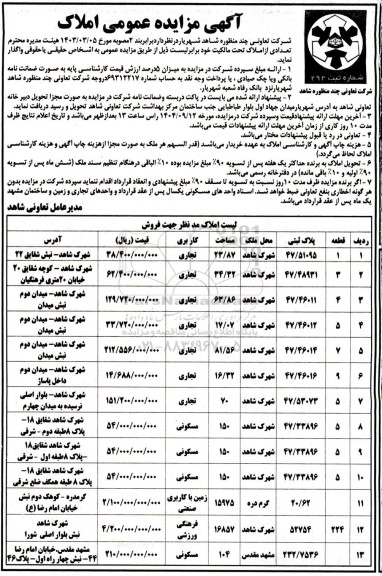 آگهی مزایده عمومی املاک
شماره ثبت ۲۹۳
شرکت تعاونی چند منظوره شاهد
شرکت تعاونی چند منظوره شاهد شهریار در نظر دارد برابر بند ۲ مصوبه مورخ ۱۴۰۳/۰۳/۰۵ هیئت مدیره محترم
تعدادی از املاک تحت مالکیت خود برابر لیست ذیل از طریق مزایده عمومی به اشخاص حقیقی یا حقوقی واگذار
نماید.
۱ - ارائه مبلغ سپرده شرکت در مزایده به میزان ۵ درصد ارزش قیمت کارشناسی پایه به صورت ضمانت نامه
بانکی ویا چک صیادی ، یا پرداخت وجه نقد به حساب شماره ۶۹۳۱۳۲۱۷ در وجه شرکت تعاونی چند منظوره شاهد
شهریار نزد بانک رفاه شعبه شهریار.
۲ - پیشنهاد ارائه شده می بایست در پاکت دربسته و ضمانت نامه شرکت در مزایده به صورت مجزا تحویل دبیر خانه
تعاونی شاهد به آدرس شهریار میدان جهاد اول بلوار طباطبایی جنب ساختمان مرکز بهداشت شرکت تعاونی شاهد تحویل و رسید دریافت نماید.
۳ - آخرین مهلت ارائه پیشنهاد قیمت وسپرده شرکت در مزایده، مورخه ۱۴۰۴/۰۹/۱۲ راس ساعت ۱۳ بعدازظهر می باشد و تاریخ اعلام نتایج ظرف
مدت ۱۰ روز کاری از زمان آخرین مهلت ارائه پیشنهادات قیمت می باشد.
۴ - تعاونی در رد یا قبول پیشنهادات مختار می باشد.
۵ - هزینه چاپ آگهی و کارشناسی املاک به عهده خریدار می باشد (قدر السهم هر ملک به صورت مجزا از هزینه چاپ آگهی و هزینه کارشناسی
املاک لحاظ می گردد).
۶ - تحویل املاک به برنده حداکثر یک هفته پس از تسویه ۹۰٪ مبلغ مزایده بوده ۱۰٪ الباقی درهنگام تنظیم سند ملک (شش ماه پس از تسویه
۹۰٪ اولیه و ۱۰٪ باقی مانده) در دفترخانه رسمی می باشد.
۷ - اگر برنده مزایده ظرف مدت ۱۰ روز نسبت به تسویه تا سقف ۹۰٪ مبلغ پیشنهادی و انعقاد قرارداد اقدام ننماید سپرده شرکت در مزایده بدون
هر گونه اخطاری بنفع تعاونی ضبط خواهد شد. اسناد واحد های مسکونی یکسال پس از عقد قرارداد و واحدهای تجاری و زمین و ساختمان مشهد
یک ماه پس از عقد قرارداد می باشد.
مدیرعامل تعاونی شاهد
لیست املاک مد نظر جهت فروش
ردیف قطعه پلاک ثبتی محل ملک مساحت کاربری قیمت (ریال) آدرس
۱ ۱ ۴۷/۵۱۰۹۵ شهرک شاهد ۲۳/۸۷ تجاری ۳۸/۴۰۰/۰۰۰/۰۰۰ شهرک شاهد- نبش شقایق ۲۲
۲ ۳ ۴۷/۴۸۹۳۱ شهرک شاهد ۳۴/۳۲ تجاری ۶۲/۴۰۰/۰۰۰/۰۰۰ شهرک شاهد - کوچه شقایق ۲۰ خیابان ۲۰متری فرهنگیان
۳ ۴ ۴۷/۴۶۰۱۱ شهرک شاهد ۶۳/۸۶ تجاری ۱۴۹/۷۴۰/۰۰۰/۰۰۰ شهرک شاهد- میدان دوم نبش میدان
۴ ۵ ۴۷/۴۶۰۱۲ شهرک شاهد ۱۷/۰۷ تجاری ۳۳/۷۲۰/۰۰۰/۰۰۰ شهرک شاهد- میدان دوم نبش میدان
۵ ۷ ۴۷/۴۶۰۱۴ شهرک شاهد ۸۱/۵۶ تجاری ۲۱۲/۵۵۶/۰۰۰/۰۰۰ شهرک شاهد- میدان دوم نبش میدان
۶ ۹ ۴۷/۴۶۰۱۶ شهرک شاهد ۱۶/۳۲ تجاری ۱۴/۶۸۸/۰۰۰/۰۰۰ شهرک شاهد- میدان دوم داخل پاساژ
۷ ۵ ۴۷/۵۳۰۷۳ شهرک شاهد ۷۰ تجاری ۱۵۱/۲۰۰/۰۰۰/۰۰۰ شهرک شاهد- بلوار اصلی نرسیده به میدان چهارم
۸ ۵ ۴۷/۳۳۸۹۶ شهرک شاهد ۱۵۰ مسکونی ۵۴/۰۰۰/۰۰۰/۰۰۰ شهرک شاهد شقایق ۱۸- پلاک ۸ طبقه دوم - شرقی
۹ ۵ ۴۷/۳۳۸۹۶ شهرک شاهد ۱۵۰ مسکونی ۵۴/۰۰۰/۰۰۰/۰۰۰ شهرک شاهد شقایق ۱۸ -پلاک ۸ طبقه اول - شرقی
۱۰ ۵ ۴۷/۳۳۸۹۶ شهرک شاهد ۱۵۰ مسکونی ۵۴/۰۰۰/۰۰۰/۰۰۰ شهرک شاهد شقایق ۱۸ - پلاک ۸ طبقه همکف ضلع شرقی
۱۱ ۲۰/۶۲ گرم دره ۱۵۹۷۵ زمین با کاربری صنعتی ۲/۱۰۰/۰۰۰/۰۰۰/۰۰۰ گرمدره - کوهک دوم نبش خیابان امام رضا (ع)
۱۲ ۲۲۴ ۵۲۷۵۴ شهرک شاهد ۱۶۸۵۷ فرهنگی ورزشی ۴/۲۰۰/۰۰۰/۰۰۰/۰۰۰ شهرک شاهد نبش بلوار اصلی شورا
۱۳ ۲۳۲/۷۵۳۶ مشهد مقدس ۱۰۴ مسکونی ۲۱۰/۰۰۰/۰۰۰/۰۰۰ مشهد مقدس، خیابان امام رضا ۴۴- نبش چهار راه اول- پلاک ۴۶